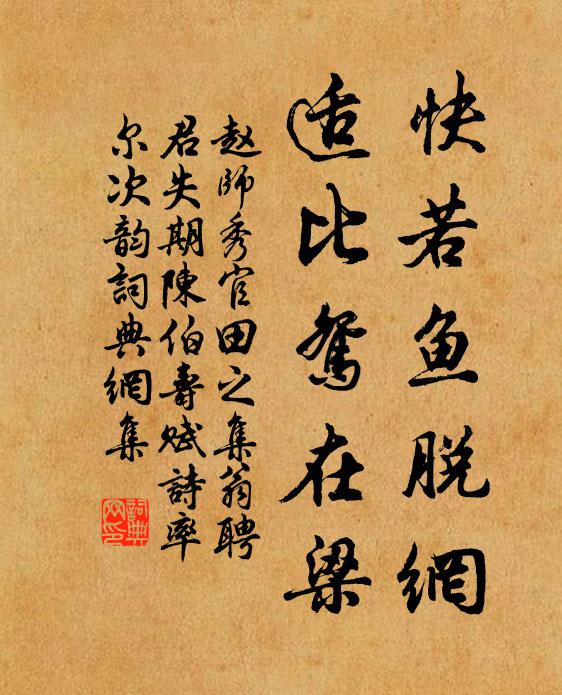 快若鱼脱網
适比鸳在梁
赵師秀官田之集翁聘
君失期陳伯壽赋詩率
尔次韵詞典網集
詞典
网印